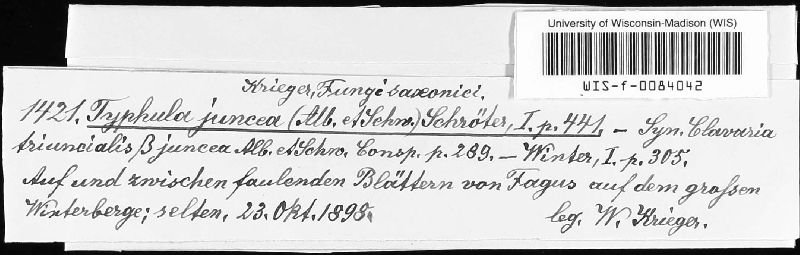 University of Wisconsin-Madison (WIS)
WIS-f-0084042
Krieger, Fungi saxonici.
1421. Typhula juncea (Alb. et Schw.) Schröter, I. p. 441. – Syn. Clavaria
triuncialis β juncea Alb. et Schw. Consp. p. 289. – Winter, I. p. 305.
Auf und zwischen faulenden Blättern von Fagus auf dem großen
Winterberge; selten, 23. Okt. 1898. leg. W. Krieger.